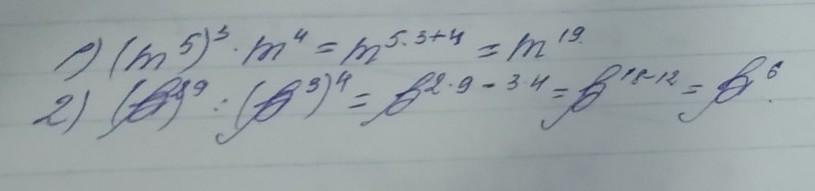 1) (m⁵)³ · m⁴ = m⁵·³⁺⁴ = m¹⁹.
2) (b²)⁹ : (b³)⁴ = b²·⁹⁻³·⁴ = b¹⁸⁻¹² = b⁶.